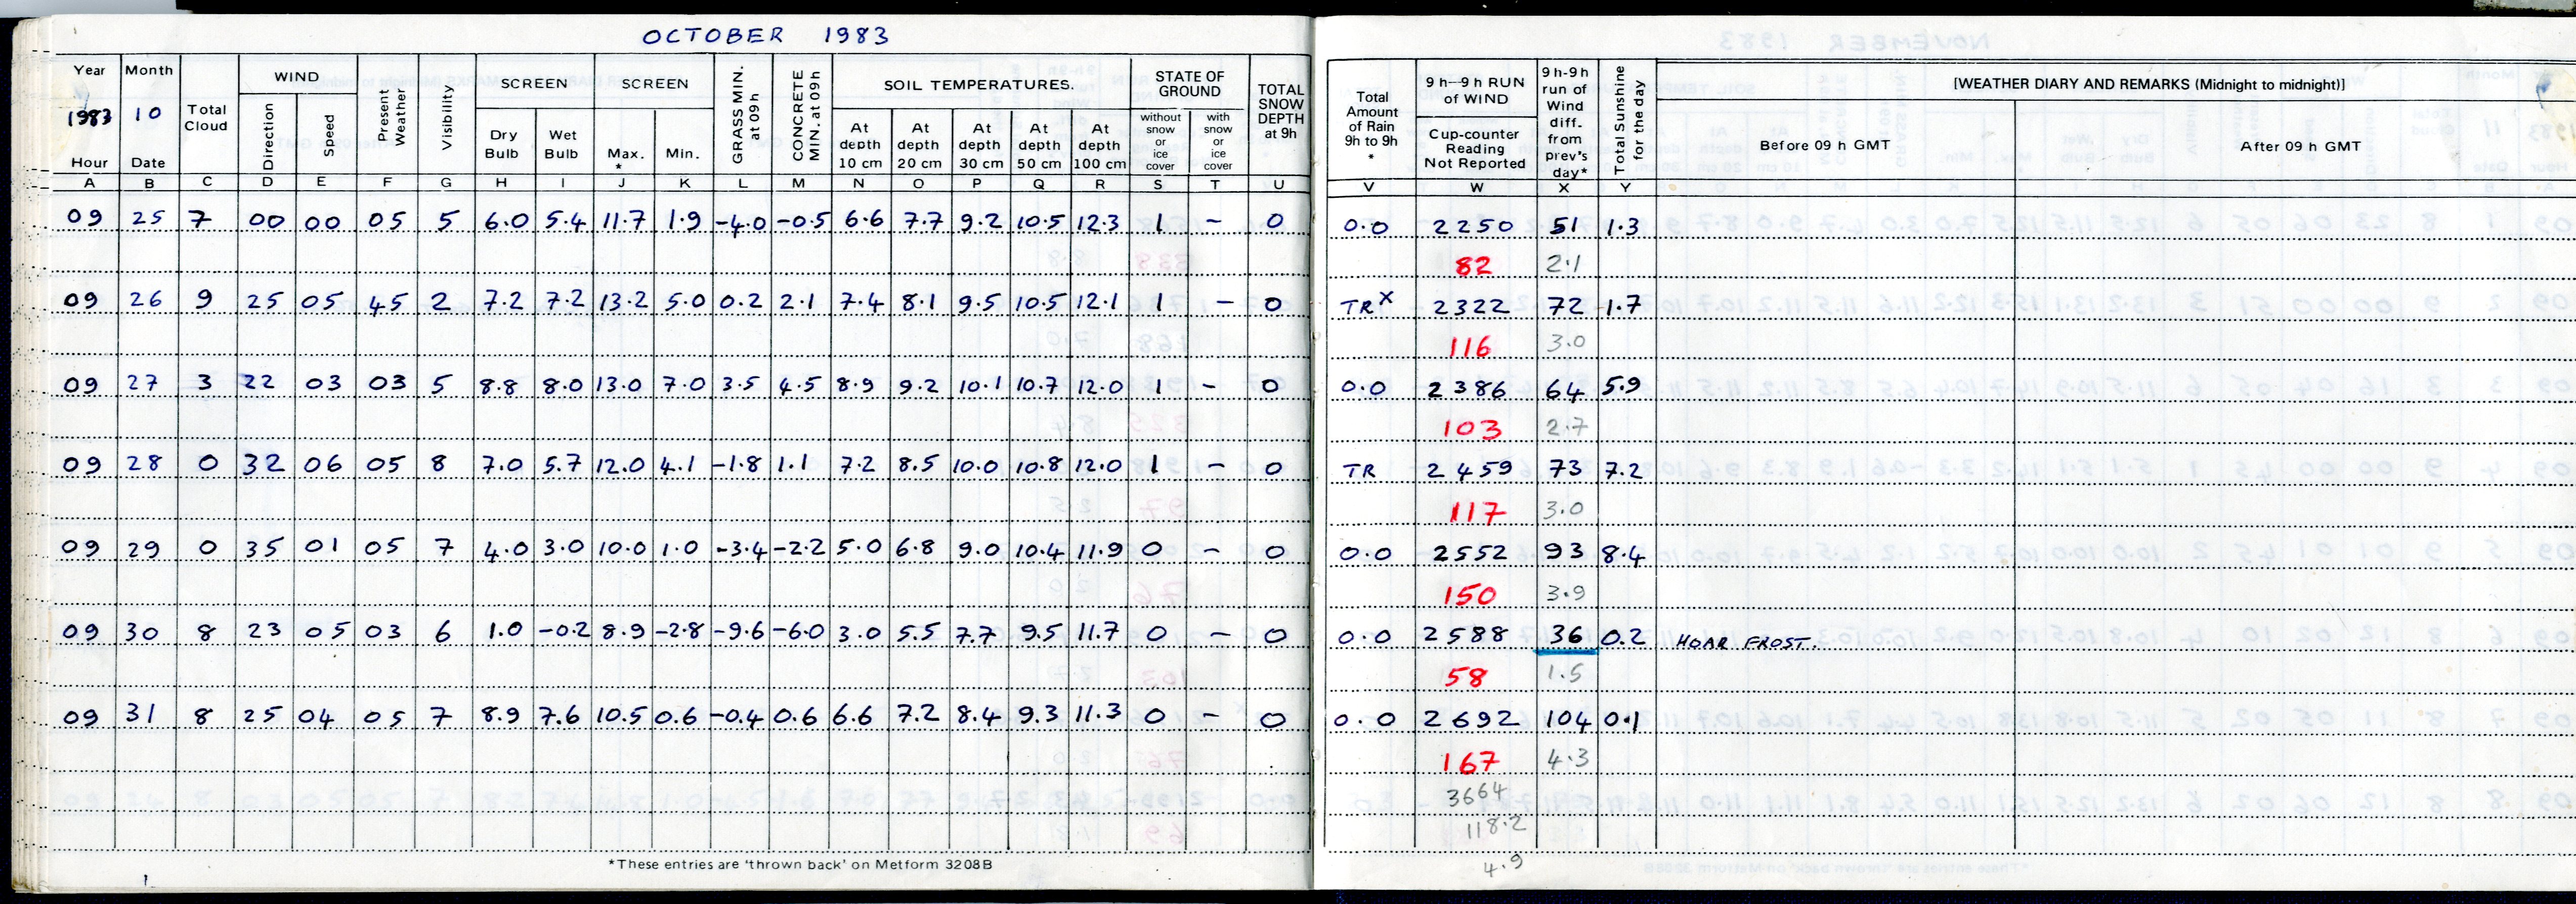 OCTOBER 1983
Year Month Total Cloud WIND Present Weather Visibility SCREEN SCREEN GRASS MIN. at 09h CONCRETE MIN. at 09h SOIL TEMPERATURES. STATE OF GROUND TOTAL SNOW DEPTH at 9h Total Amount of Rain 9h to 9h * 9 h—9 h RUN of WIND 9 h-9h run of Wind diff. from prev's day* Total Sunshine for the day [WEATHER DIARY AND REMARKS (Midnight to midnight)]
1983 10
Hour Date Direction Speed Dry Bulb Wet Bulb Max. * Min. At depth 10 cm At depth 20 cm At depth 30 cm At depth 50 cm At depth 100 cm without snow or ice cover with snow or ice cover Cup-counter Reading Not Reported Before 09 h GMT After 09 h GMT
A B C D E F G H I J K L M N O P Q R S T U V W X Y
09 25 7 00 00 05 5 6.0 5.4 11.7 1.9 -4.0 -0.5 6.6 7.7 9.2 10.5 12.3 1 - 0 0.0 2250 51 1.3
82 2.1
09 26 9 25 05 45 2 7.2 7.2 13.2 5.0 0.2 2.1 7.4 8.1 9.5 10.5 12.1 1 - 0 TRx 2322 72 1.7
116 3.0
09 27 3 22 03 03 5 8.8 8.0 13.0 7.0 3.5 4.5 8.9 9.2 10.1 10.7 12.0 1 - 0 0.0 2386 64 5.9
103 2.7
09 28 0 32 06 05 8 7.0 5.7 12.0 4.1 -1.8 1.1 7.2 8.5 10.0 10.8 12.0 1 - 0 TR 2459 73 7.2
117 3.0
09 29 0 35 01 05 7 4.0 3.0 10.0 1.0 -3.4 -2.2 5.0 6.8 9.0 10.4 11.9 0 - 0 0.0 2552 93 8.4
150 3.9
09 30 8 23 05 03 6 1.0 -0.2 8.9 -2.8 -9.6 -6.0 3.0 5.5 7.7 9.5 11.7 0 - 0 0.0 2588 36 0.2 HOAR FROST.
58 1.5
09 31 8 25 04 05 7 8.9 7.6 10.5 0.6 -0.4 0.6 6.6 7.2 8.4 9.3 11.3 0 - 0 0.0 2692 104 0.1
167 4.3
3664
118.2
*These entries are 'thrown back' on Metform 3208B
4.9